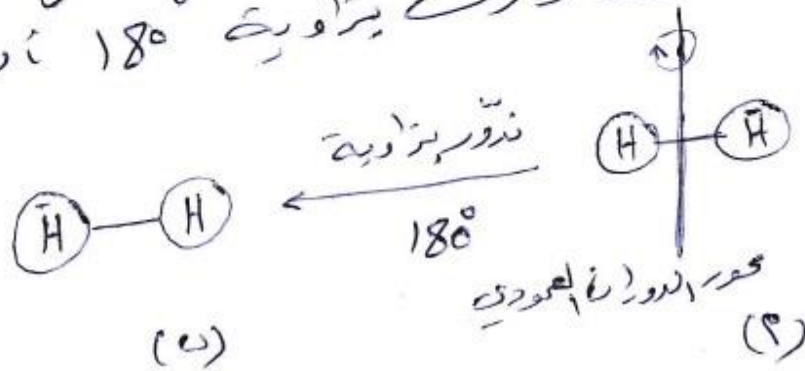 بزاوية 18°
ندوّر بزاوية
180°
H H̄
H̄ H
محور الدوران العمودي
(٢)
(ب)